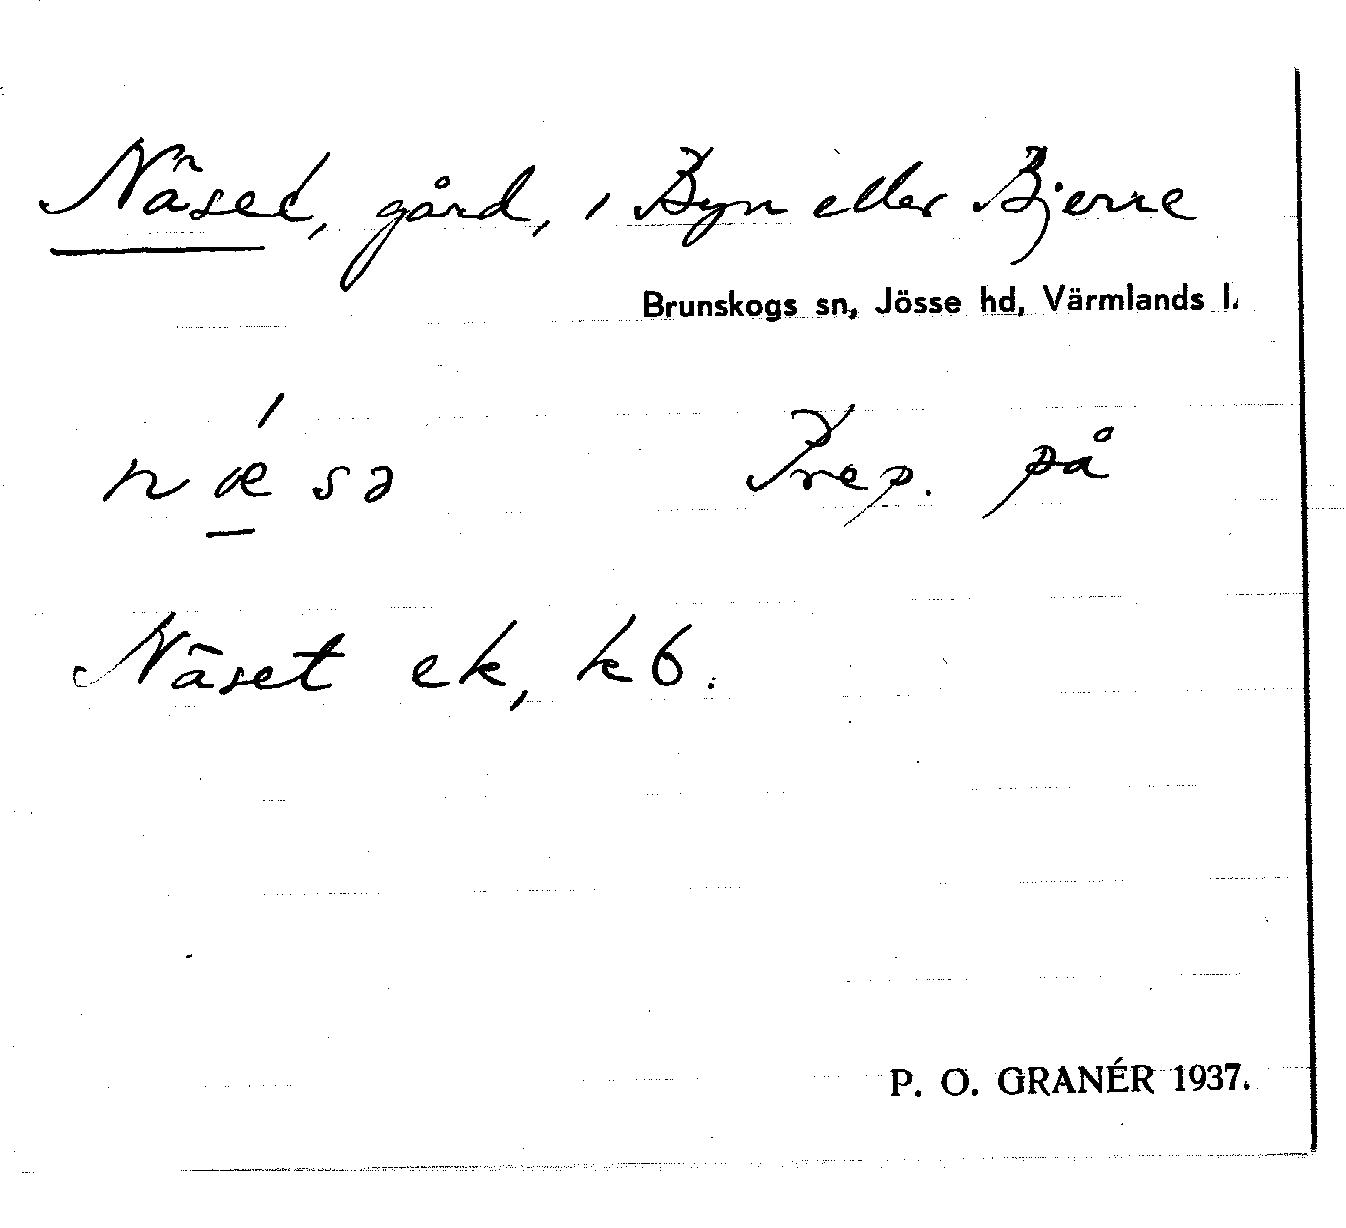 Näset, gård, i Byn eller Bjerre
Brunskogs sn, Jösse hd, Värmlands l.
n ǽ s ə Prep. på
Näset ek, kb.
P. O. GRANÉR 1937.